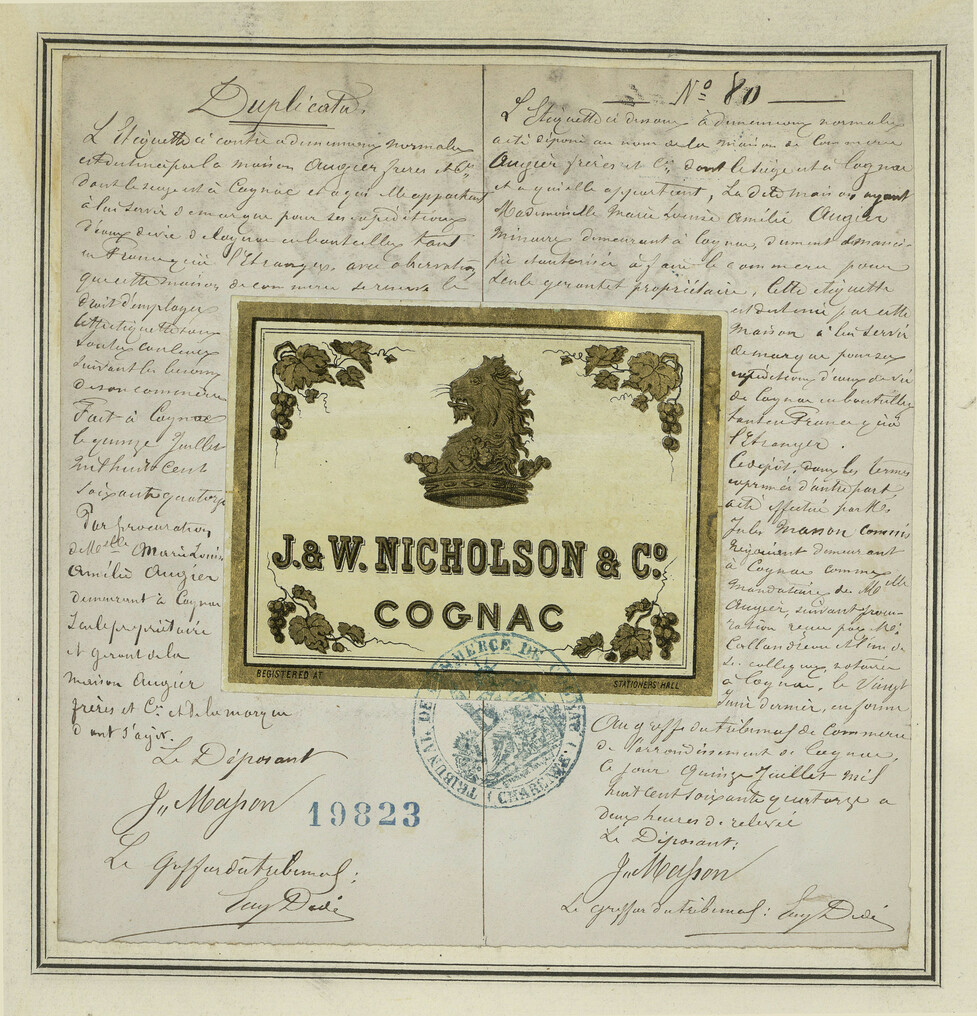 Duplicata.
L'Etiquette ci contre a dimensions normales
est destinée par la maison Augier frères et Cie
dont le siège est à Cognac et à qui elle appartient
à lui servir de marque pour ses expéditions
d'eaux de vie de Cognac en bouteilles tant
en France qu'à l'Etranger, avec observation
que cette maison de commerce se réserve le
droit d'employer
cette étiquette sous
toutes couleurs
suivant les besoins
de son commerce
Fait à Cognac
le quinze Juillet
mil huit cent
soixante quatorze
Par procuration
de Melle Marie Louise
Amélie Augier
demeurant à Cognac
seule propriétaire
et gérant de la
maison Augier
frères et Cie et de la marque
dont s'agit.
Le Déposant
J. Masson
19823
Le Greffier du tribunal:
No 80
L'Etiquette ci dessous à dimensions normales
a été déposée au nom de la maison de Commerce
Augier frères et Cie dont le siège est à Cognac
et à qui elle appartient, La dite maison ayant
Mademoiselle Marie Louise Amélie Augier
mineure demeurant à Cognac, dument émanci-
pée et autorisée à faire le commerce pour
seule gérant et propriétaire, Cette étiquette
est destinée par cette
Maison à lui servir
de marque pour ses
expéditions d'eaux de vie
de Cognac en bouteilles
tant en France qu'à
l'étranger.
Ce dépôt, dans les termes
exprimés d'autre part,
a été effectué par Mr
Jules Masson commis
négociant demeurant
à Cognac comme
mandataire de Melle
Augier, suivant procu-
ration reçue par Me
Callandreau et l'un de
ses collègues notaires
à Cognac, le vingt
Juin dernier, en forme
Au greffe du tribunal de Commerce
de l'arrondissement de Cognac,
Ce jour quinze Juillet mil
huit cent soixante quatorze a
deux heures de relevée
Le Déposant:
J. Masson
Le greffier du tribunal:
J. & W. NICHOLSON & Co.
COGNAC
REGISTERED AT
STATIONERS' HALL
TRIBUNAL DE COMMERCE DE COGNAC
(CHARENTE)